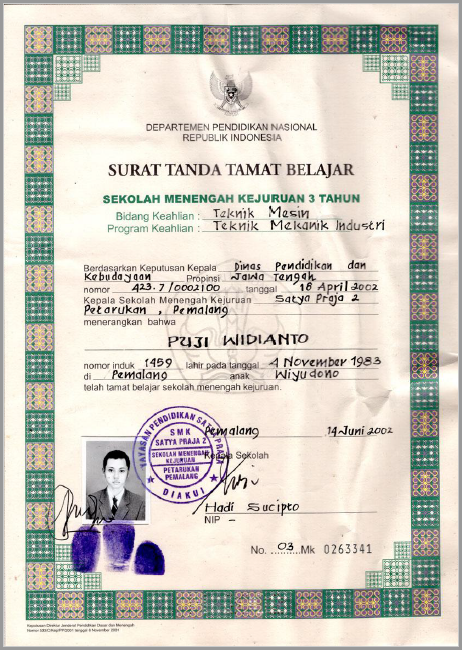 DEPARTEMEN PENDIDIKAN NASIONAL
REPUBLIK INDONESIA
SURAT TANDA TAMAT BELAJAR
SEKOLAH MENENGAH KEJURUAN 3 TAHUN
Bidang Keahlian : Teknik Mesin
Program Keahlian : Teknik Mekanik Industri
Berdasarkan Keputusan Kepala Dinas Pendidikan dan
Kebudayaan Propinsi Jawa Tengah
nomor 423.7/0002100 tanggal 18 April 2002
Kepala Sekolah Menengah Kejuruan Satya Praja 2
Petarukan, Pemalang
menerangkan bahwa
PUJI WIDIANTO
nomor induk 1459 lahir pada tanggal 4 November 1983
di Pemalang anak Wiyudono
telah tamat belajar sekolah menengah kejuruan.
Pemalang 14 Juni 2002
Kepala Sekolah
YAYASAN PENDIDIKAN SATYA PRAJA
SMK
SATYA PRAJA 2
SEKOLAH MENENGAH
KEJURUAN
PETARUKAN
PEMALANG
DIAKUI
Hadi Sucipto
NIP -
No. 03 Mk 0263341
Keputusan Direktur Jenderal Pendidikan Dasar dan Menengah